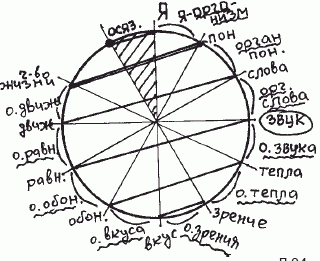 Я
осяз.
Я-орга-
низм
пон
орган
пон.
слова
орг.
слова
звук
о.звука
тепла
о.тепла
зрение
о.зрения
вкус
о.вкуса
обон.
о.обон.
равн.
о.равн.
движ
о.движ
ч-во
жизни